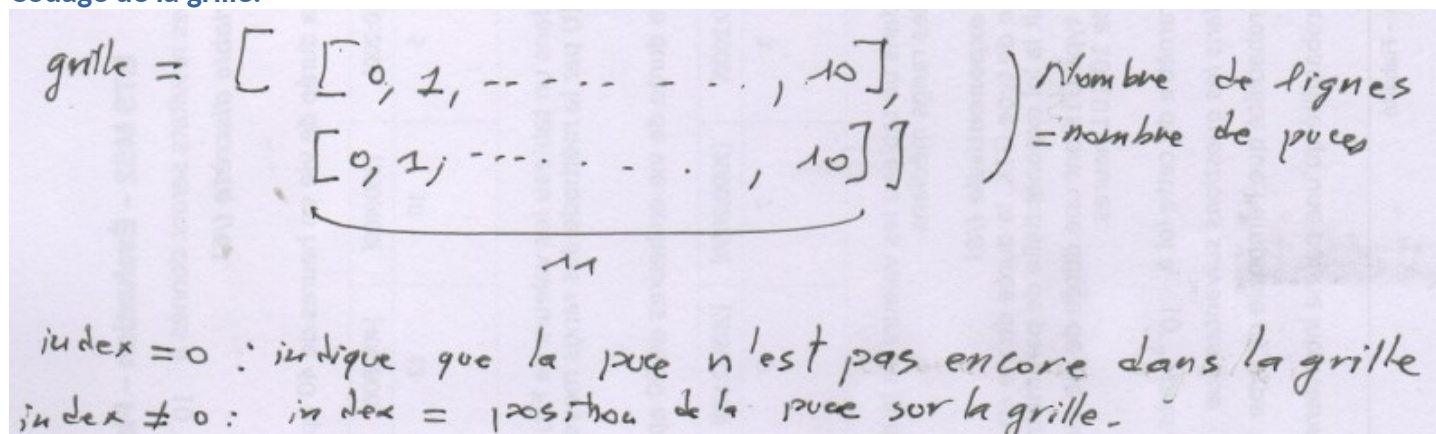 Codage de la grille.
grille = [ [0, 1, -- -- - - - - . . , 10],
[0, 1, ---.... - . . , 10]]
) Nombre de lignes
= nombre de puces
11
index = 0 : indique que la puce n'est pas encore dans la grille
index ≠ 0 : index = position de la puce sur la grille.